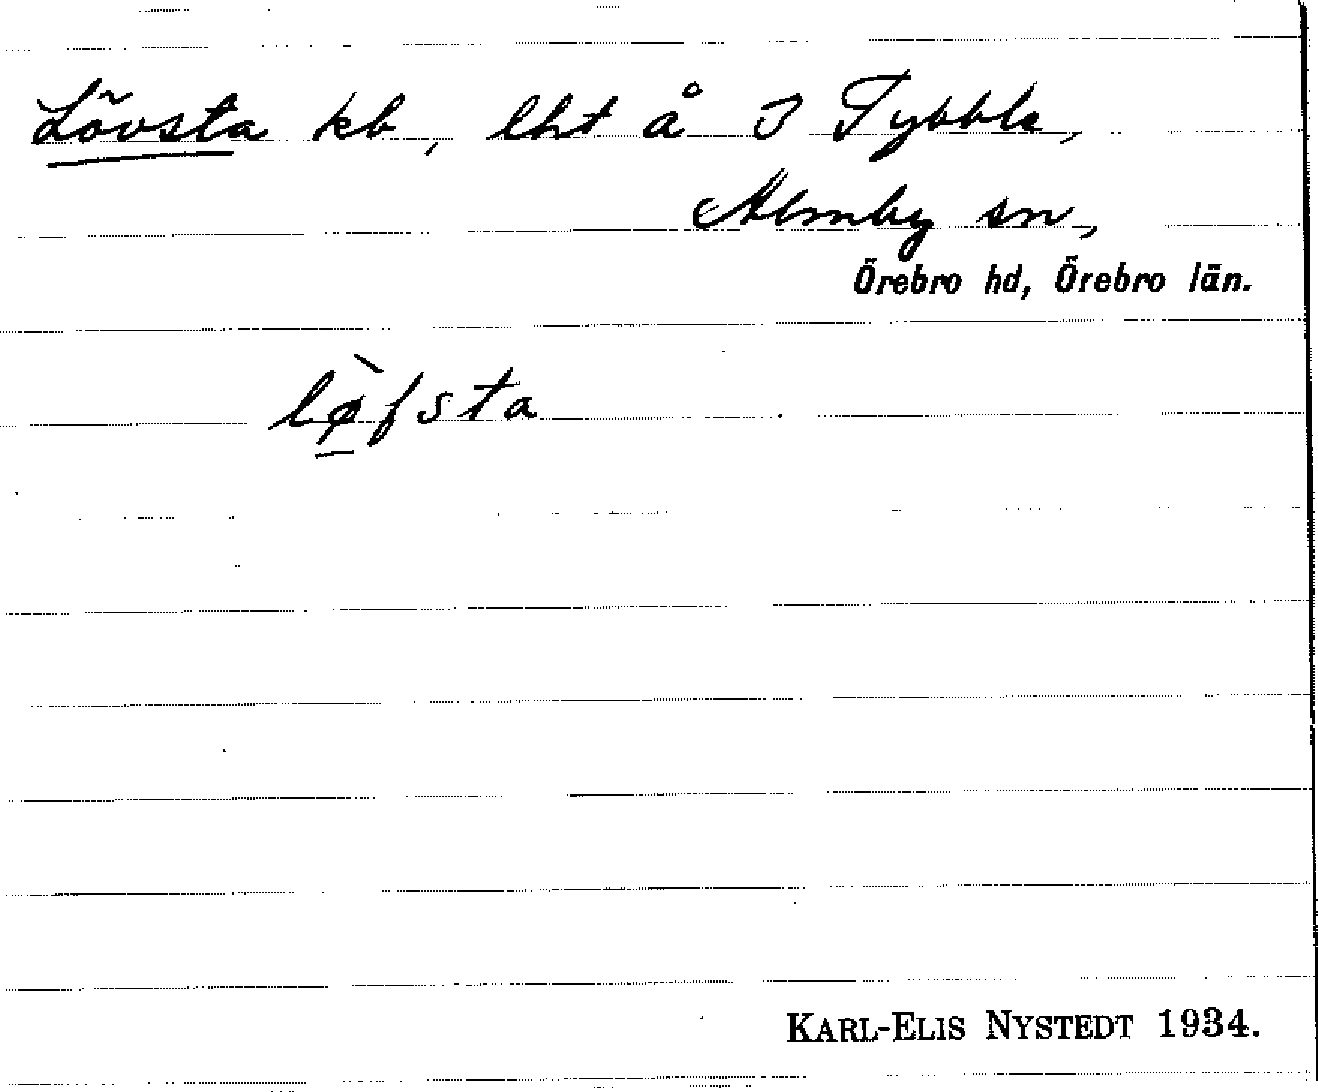 Lövsta kb, lht å 3 Tybble,
Almby sn,
Örebro hd, Örebro län.
lø̀fsta
KARL-ELIS NYSTEDT 1934.